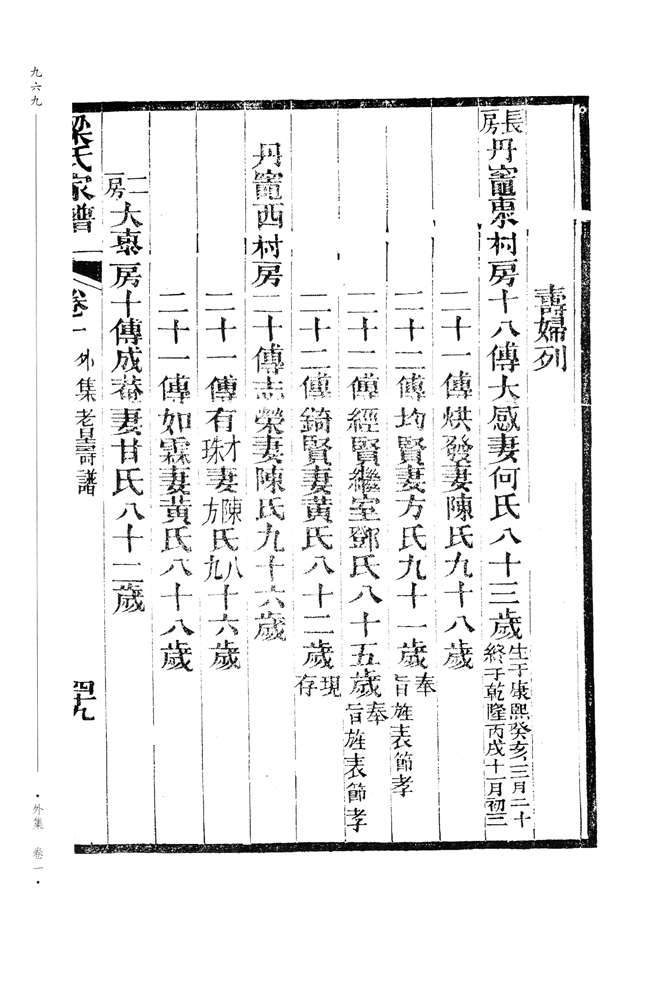 壽婦列
長房丹竈東村房十八傳大感妻何氏八十三歲生于康熙癸亥三月二十終于乾隆丙戌十一月初三
二十一傳烘發妻陳氏九十八歲
二十二傳均賢妻方氏九十一歲奉旨旌表節孝
二十二傳經賢繼室鄧氏八十五歲奉旨旌表節孝
二十二傳錡賢妻黃氏八十二歲現存
丹竈西村房二十傳志榮妻陳氏九十六歲
二十一傳有才珠妻陳方氏八九十六歲
二十一傳如霖妻黃氏八十八歲
二房大東房十傳成菴妻甘氏八十二歲
梁氏家譜 卷一 外集老壽譜 四十九
九六九
·外集 卷一·